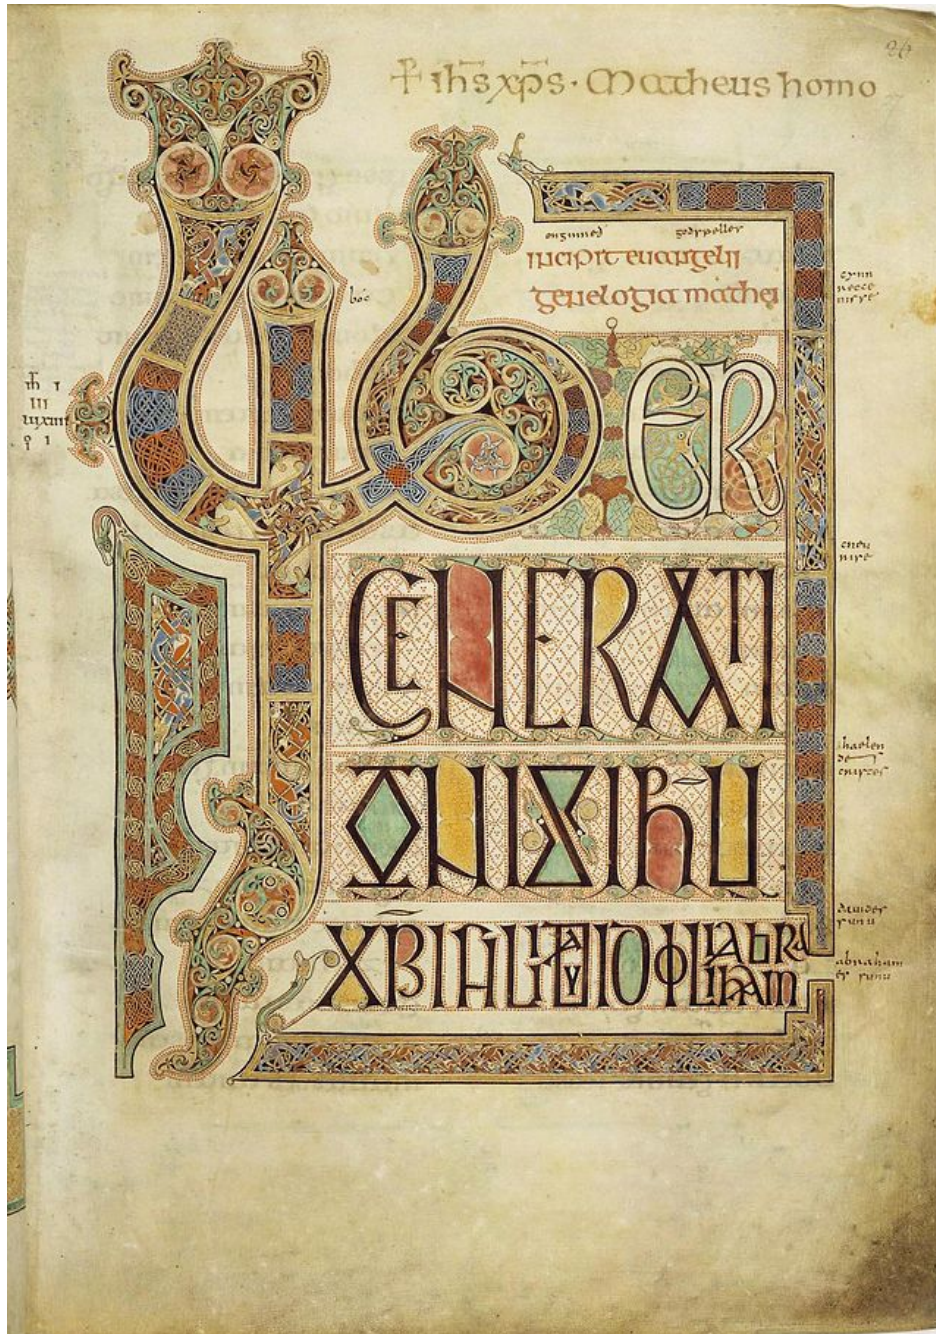 26
+ ihs xp̄s · Matheus homo
onginneð godspelles
incipit euangelii
genelogia mathei
bóc
LIBER
GENERATI
ONIS IHŪ
XP̄I FILII DAUID FILII ABRAHAM
cneu
haelen
de
cristes
dauides
sunu
abraham
es sunu